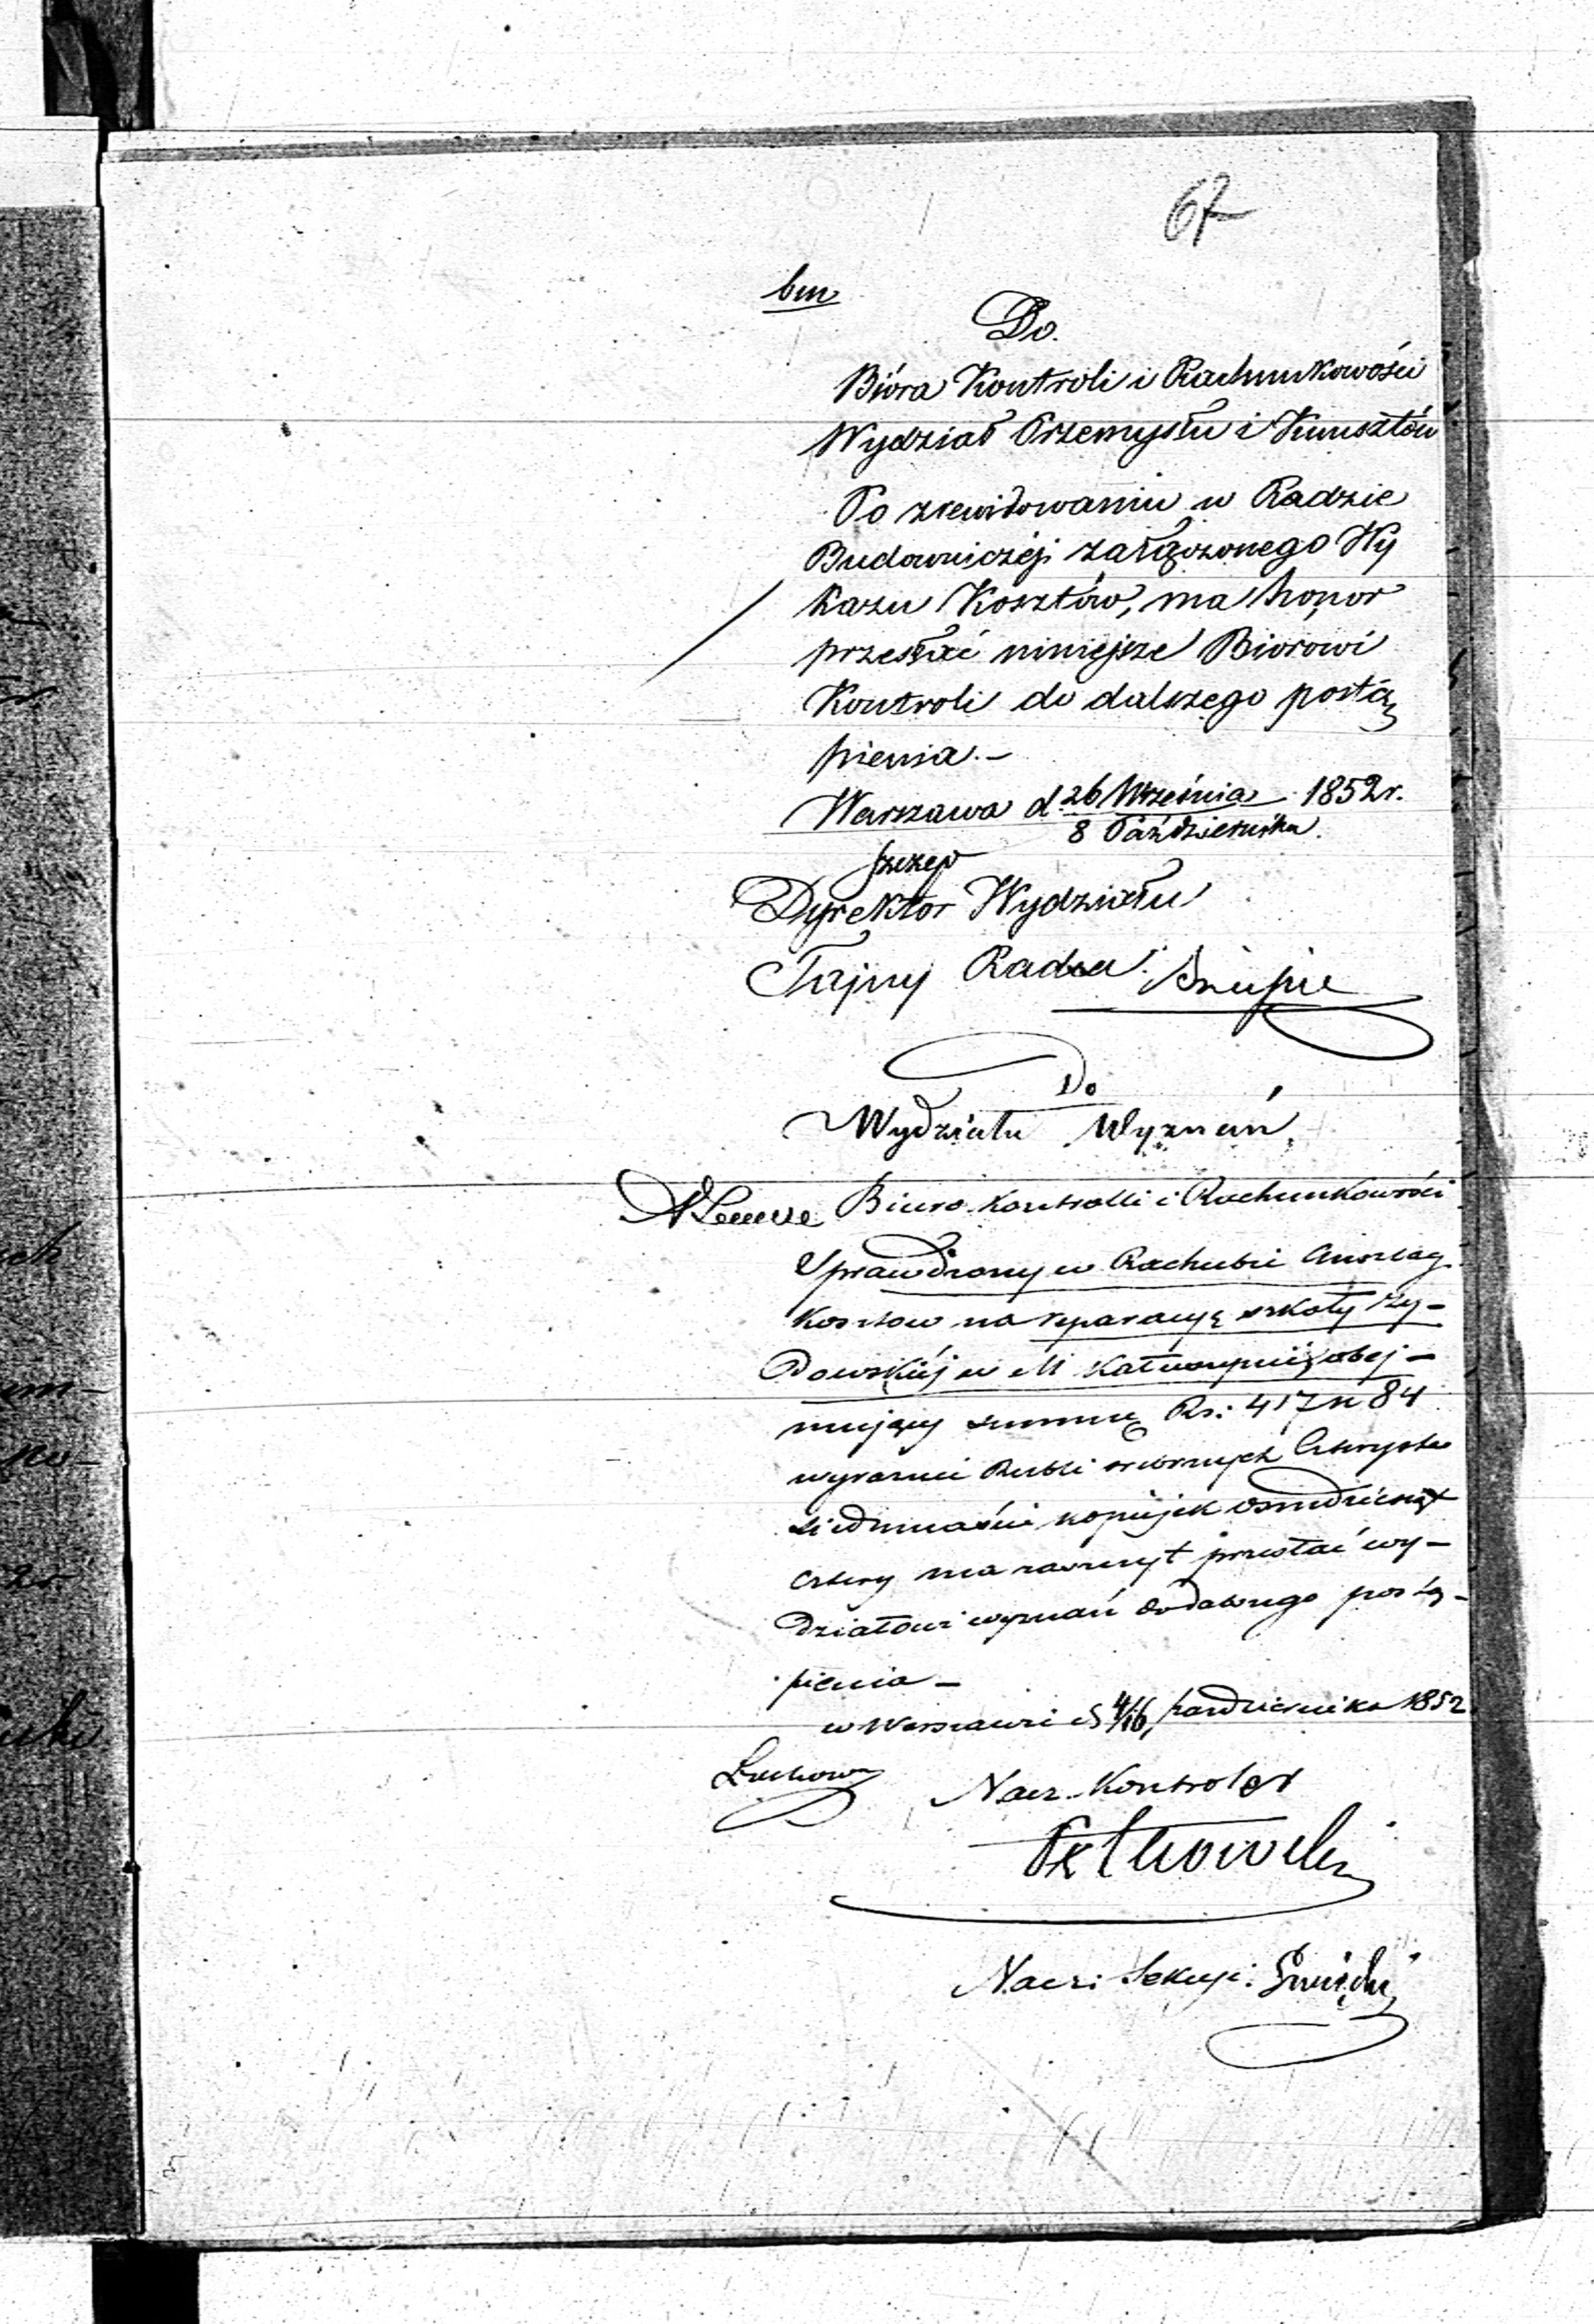 67
bm
Do.
Bióra Kontroli i Rachunkowości
Wydział Przemysłu i Kunsztów
Po zrewidowaniu w Radzie
Budowniczéj załączonego Wy
kazu Kosztów, ma honor
przesłać niniejsze Biórowi
Kontroli do dalszego postą
pienia.-
Warszawa d 26 Września 1852r.
8 Października.
Dyrektor Wydziału
Tajny Radca
Do
Wydziału Wyznań
Biuro Kontrolli i Rachunkowości
Sprawdzony w Rachubie Anszlag
kosztow na reparacyę szkoły ży-
dowskiéj w M Kałuszynie, obej-
mujący summę Rs: 417 k 84
wyraznie Rubli srebrnych Czterysta
siedmnaście kopiejek osmdziesiąt
cztery ma zaszczyt przesłać wy-
działowi wyznań do dalszego postą-
pienia -
w Warszawie d 4/16 Pazdziernika 1852
Nacz. Kontroler
Nacz: Sekcyi: